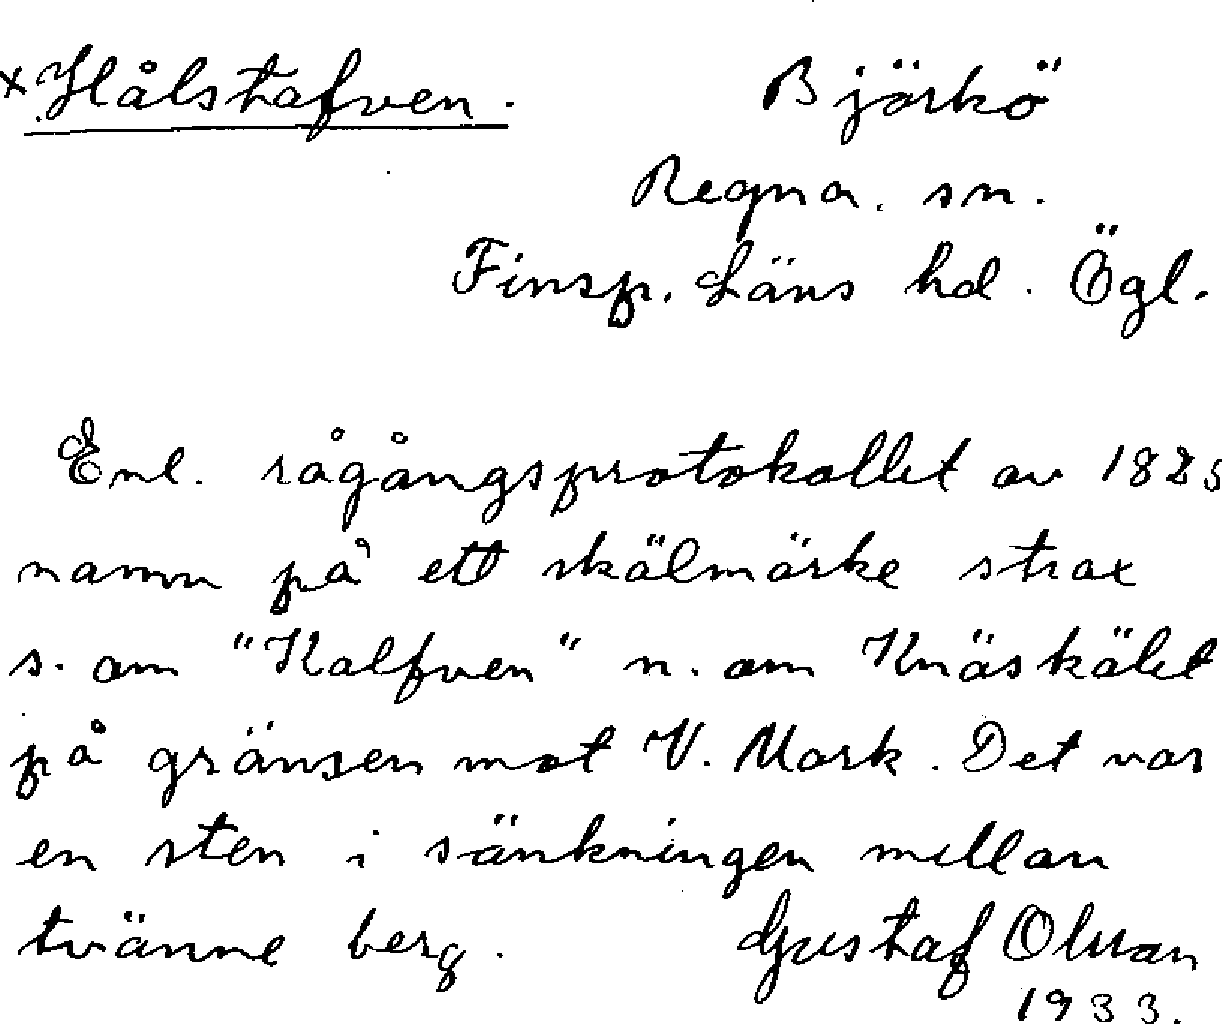 × Hålstafven. Björkö
Regna. sn.
Finsp. Läns hd. Ögl.
Enl. rågångsprotokollet av 1825
namn på ett skälmärke strax
s. om "Kalfven" n. om Knäskälet
på gränsen mot V. Mark. Det var
en sten i sänkningen mellan
tvänne berg. Gustaf Olsson
1933.